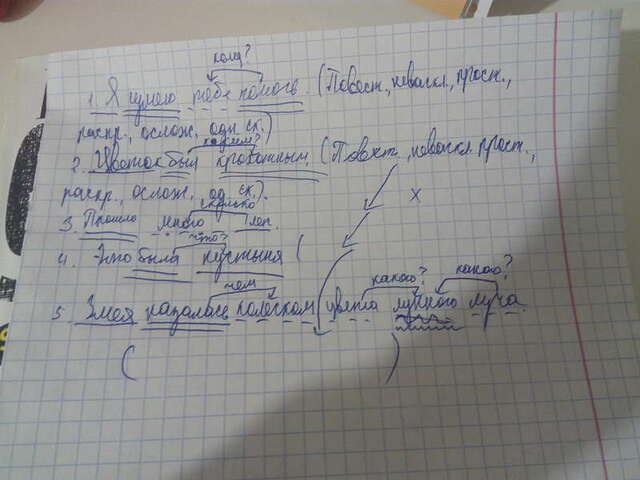 кому?
1. Я умею тебе помочь (Повест., невоскл., прост.,
распр., ослож., одн. ск.)
каким?
2. Цветок был крохотным (Повест., невоскл. прост.,
распр., ослож., од. ск.).
сколько
3. Прошло много лет.
что?
4. Это была пустыня (
чем какого? какого?
5. Змея казалась колечком цвета лунного луча.
( )